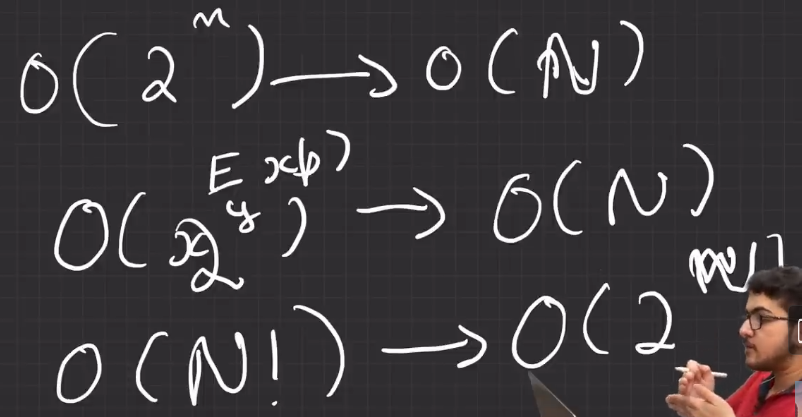 O(2ⁿ) → O(N)
Exp)
O(x2^y) → O(N)
O(N!) → O(2